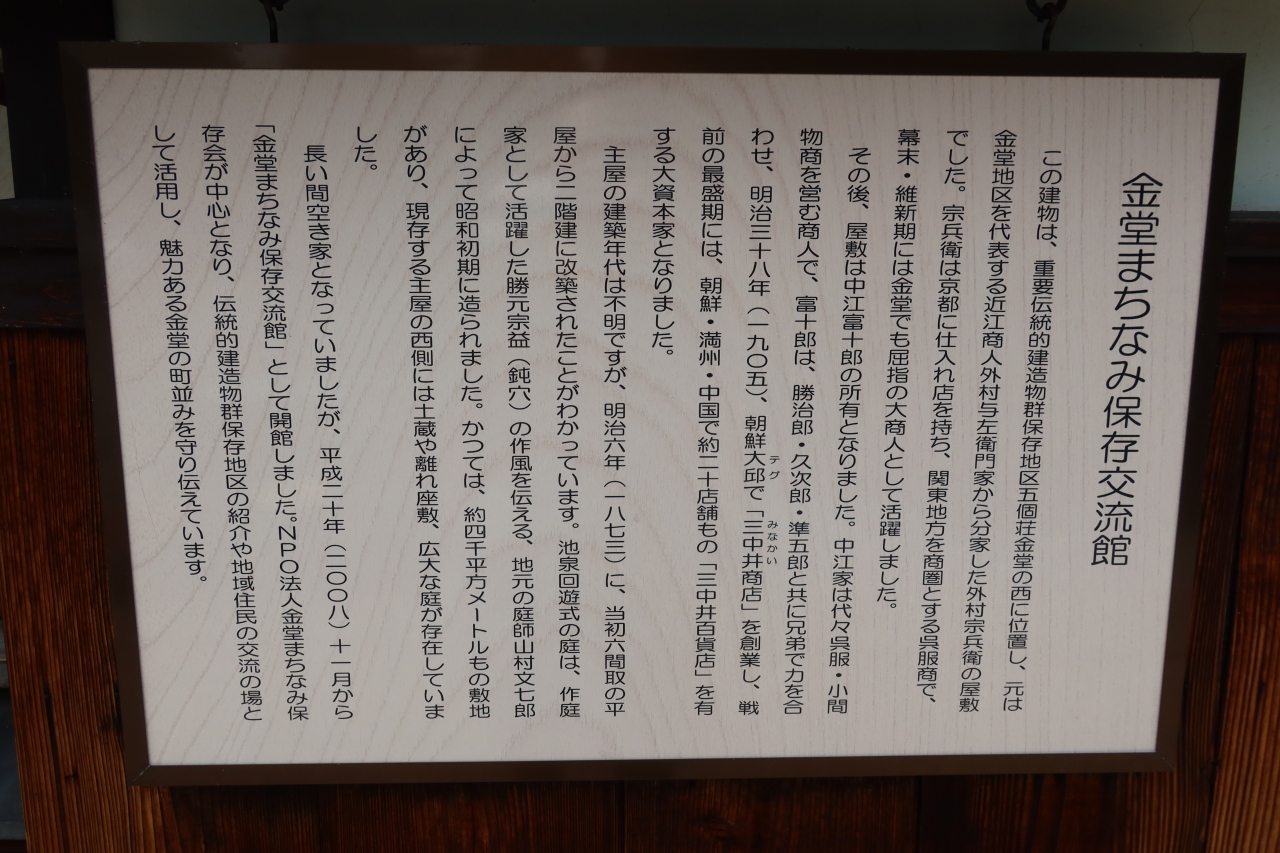 金堂まちなみ保存交流館
この建物は、重要伝統的建造物群保存地区五個荘金堂の西に位置し、元は
金堂地区を代表する近江商人外村与左衛門家から分家した外村宗兵衛の屋敷
でした。宗兵衛は京都に仕入れ店を持ち、関東地方を商圏とする呉服商で、
幕末・維新期には金堂でも屈指の大商人として活躍しました。
その後、屋敷は中江富十郎の所有となりました。中江家は代々呉服・小間
物商を営む商人で、富十郎は、勝治郎・久次郎・準五郎と共に兄弟で力を合
わせ、明治三十八年（一九〇五）、朝鮮大邱テグで「三中井みなかい商店」を創業し、戦
前の最盛期には、朝鮮・満州・中国で約二十店舗もの「三中井百貨店」を有
する大資本家となりました。
主屋の建築年代は不明ですが、明治六年（一八七三）に、当初六間取の平
屋から二階建に改築されたことがわかっています。池泉回遊式の庭は、作庭
家として活躍した勝元宗益（鈍穴）の作風を伝える、地元の庭師山村文七郎
によって昭和初期に造られました。かつては、約四千平方メートルもの敷地
があり、現存する主屋の西側には土蔵や離れ座敷、広大な庭が存在していま
した。
長い間空き家となっていましたが、平成二十年（二〇〇八）十一月から
「金堂まちなみ保存交流館」として開館しました。NPO法人金堂まちなみ保
存会が中心となり、伝統的建造物群保存地区の紹介や地域住民の交流の場と
して活用し、魅力ある金堂の町並みを守り伝えています。